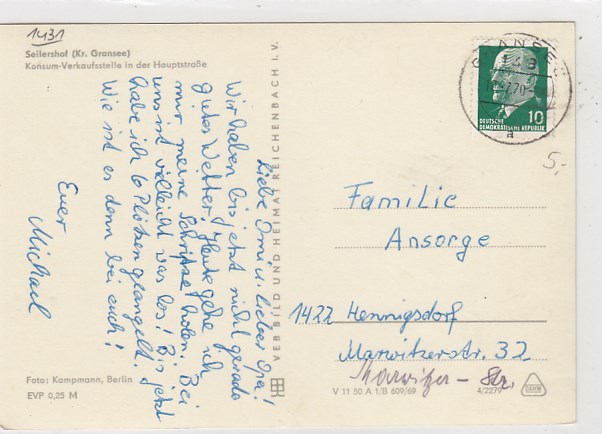 1431
Seilershof (Kr. Gransee)
Konsum-Verkaufsstelle in der Hauptstraße
Liebe Omi u. lieber Opa!
Wir haben bis jetzt nicht gerade
gutes Wetter. Heute gehe ich
nur meine Schritze holen. Bei
uns ist vielleicht was los! Bis jetzt
habe ich 6 Plötzen geangelt.
Wie ist es denn bei euch!
Euer
Michael
Foto: Kampmann, Berlin
EVP 0,25 M
VEB BILD UND HEIMAT REICHENBACH I. V.
143
70
a
10
DEUTSCHE
DEMOKRATISCHE REPUBLIK
5,-
Familie
Ansorge
1422 Hennigsdorf
Marwitzerstr. 32
Marwitzer-Str.
V 11 50 A 1/B 609/69
4/2279